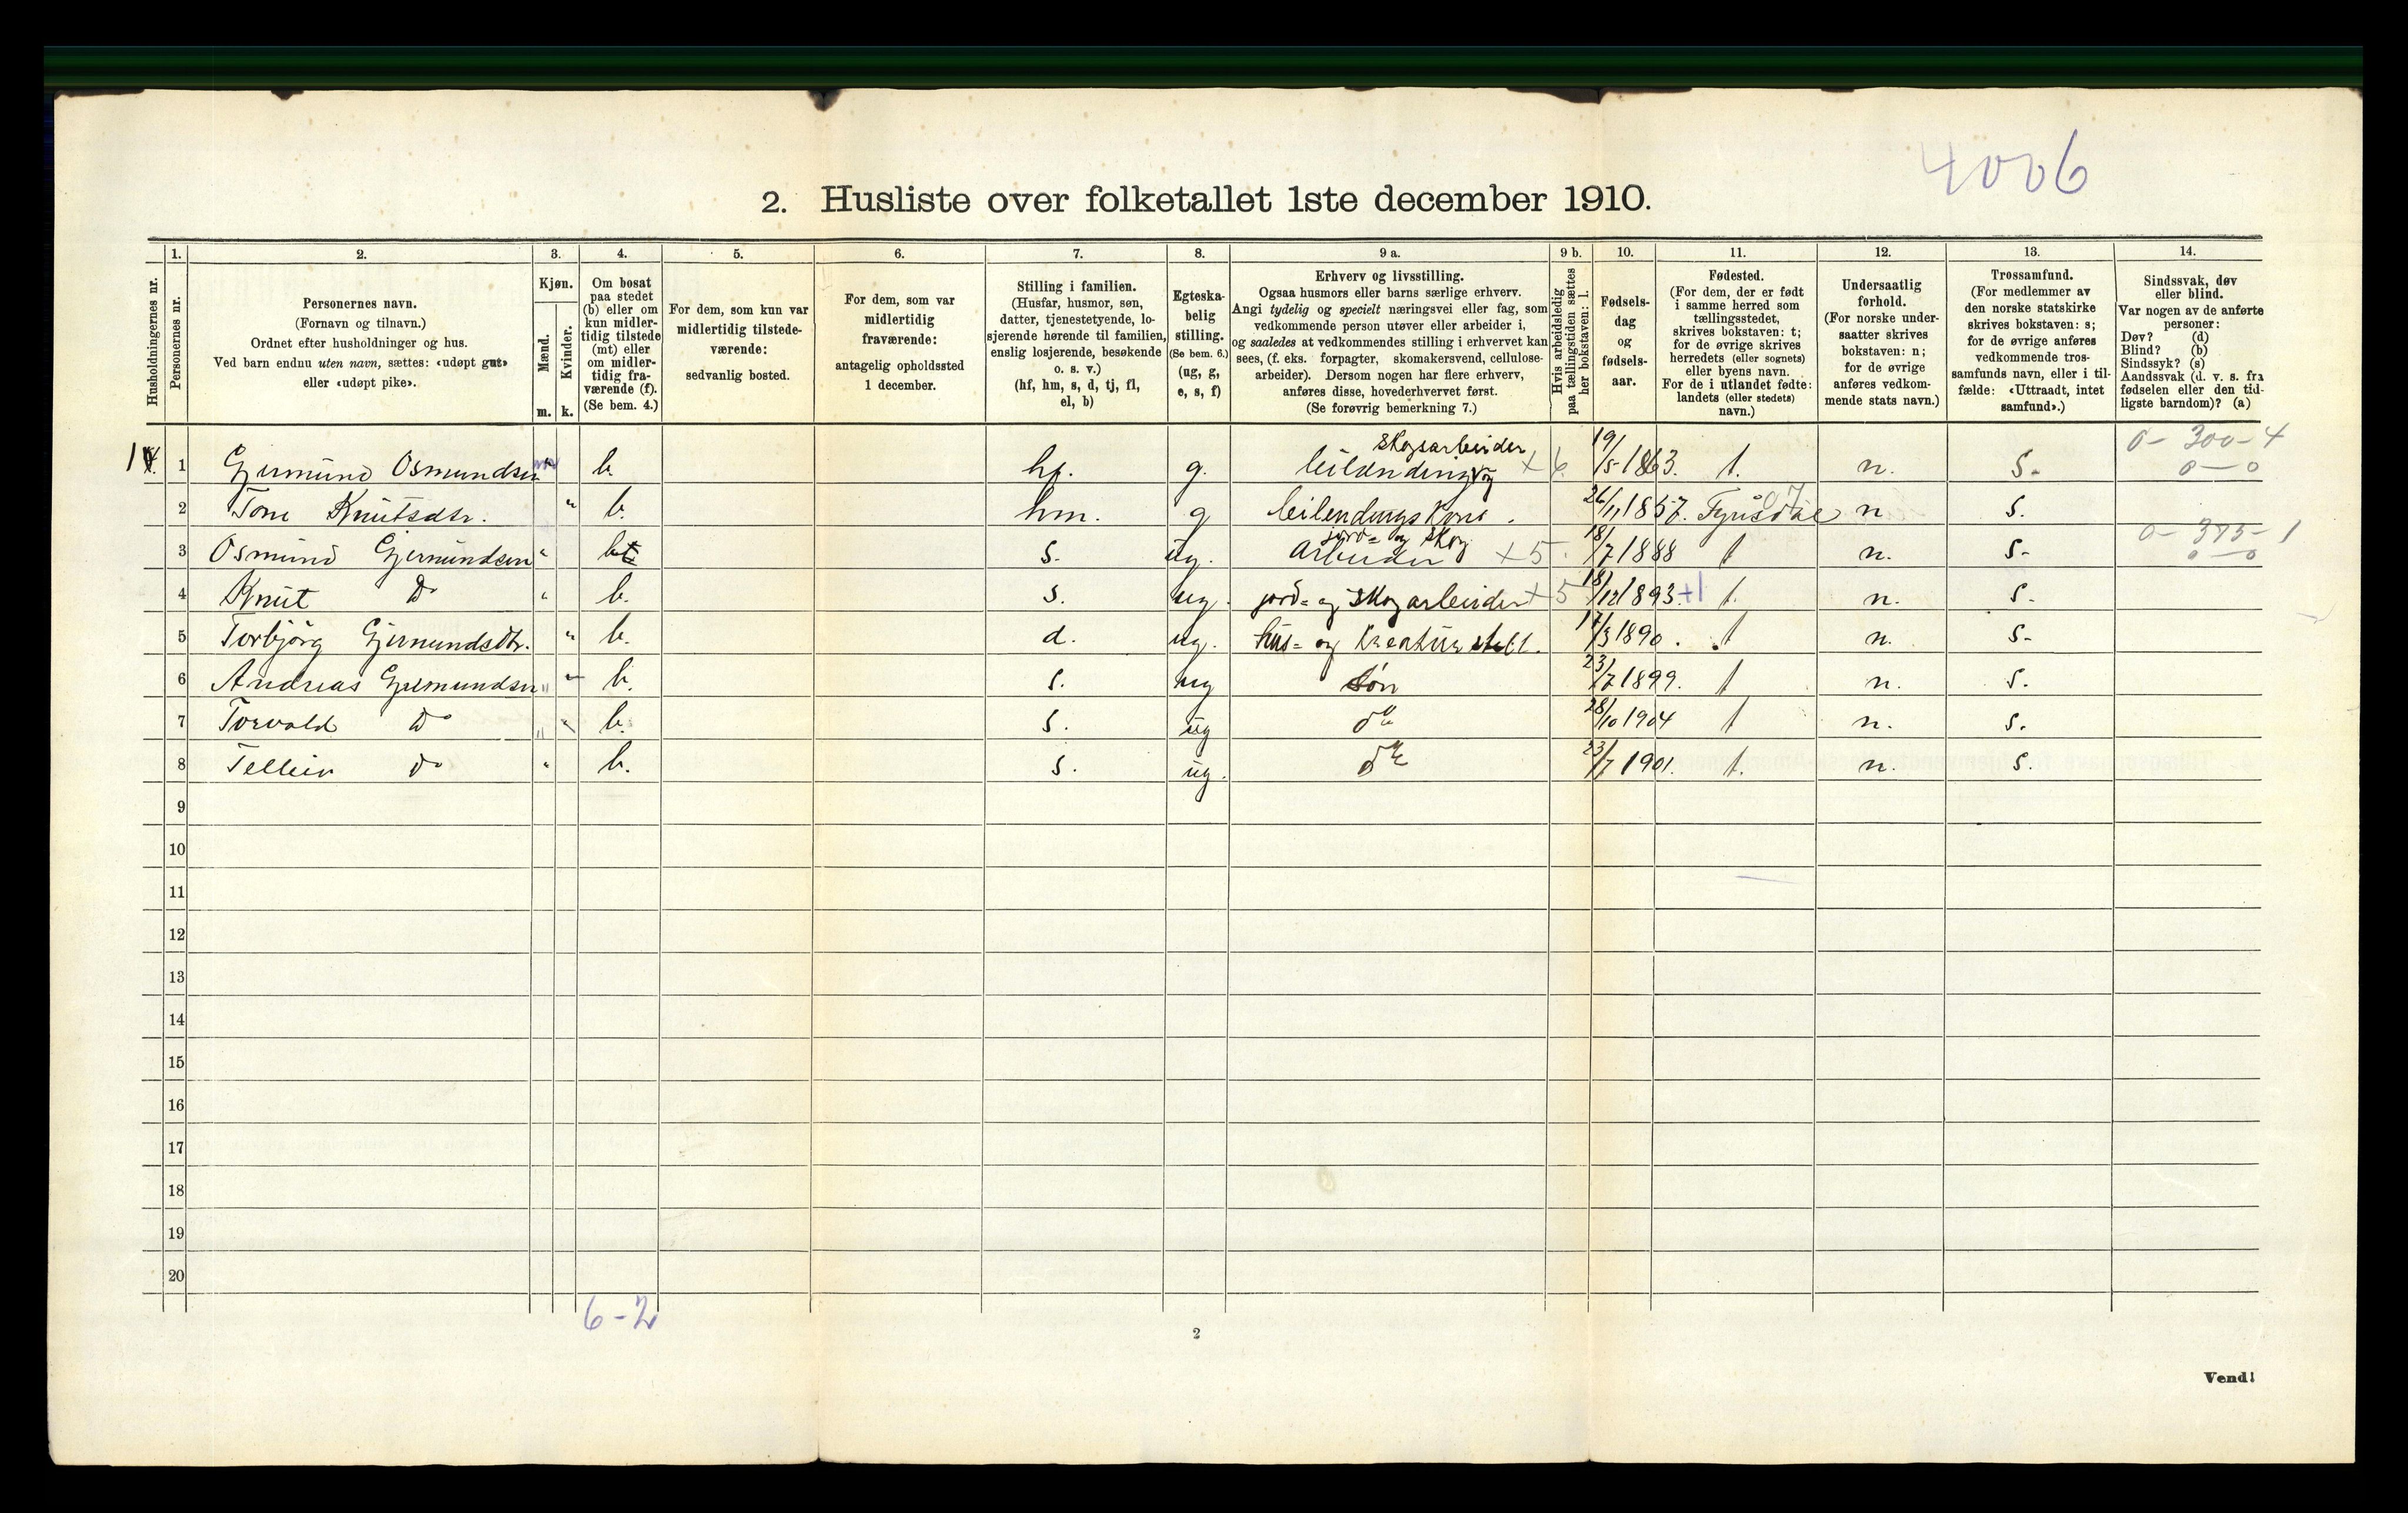 4006
2. Husliste over folketallet 1ste december 1910.
Husholdningernes nr.
1. Personernes nr.
2. Personernes navn.
(Fornavn og tilnavn.)
Ordnet efter husholdninger og hus.
Ved barn endnu uten navn, sættes: «udøpt gut»
eller «udøpt pike».
3. Kjøn.
Mænd. m.
Kvinder. k.
4. Om bosat
paa stedet
(b) eller om
kun midler-
tidig tilstede
(mt) eller
om midler-
tidig fra-
værende (f).
(Se bem. 4.)
5. For dem, som kun var
midlertidig tilstede-
værende:
sedvanlig bosted.
6. For dem, som var
midlertidig
fraværende:
antagelig opholdssted
1 december.
7. Stilling i familien.
(Husfar, husmor, søn,
datter, tjenestetyende, lo-
sjerende hørende til familien,
enslig losjerende, besøkende
o. s. v.)
(hf, hm, s, d, tj, fl,
el, b)
8. Egteska-
belig
stilling.
(Se bem. 6.)
(ug, g,
e, s, f)
9 a. Erhverv og livsstilling.
Ogsaa husmors eller barns særlige erhverv.
Angi tydelig og specielt næringsvei eller fag, som
vedkommende person utøver eller arbeider i,
og saaledes at vedkommendes stilling i erhvervet kan
sees, (f. eks. forpagter, skomakersvend, cellulose-
arbeider). Dersom nogen har flere erhverv,
anføres disse, hovederhvervet først.
(Se forøvrig bemerkning 7.)
9 b. Hvis arbeidsledig
paa tællingstiden sættes
her bokstaven: l.
10. Fødsels-
dag
og
fødsels-
aar.
11. Fødested.
(For dem, der er født
i samme herred som
tællingsstedet,
skrives bokstaven: t;
for de øvrige skrives
herredets (eller sognets)
eller byens navn.
For de i utlandet fødte:
landets (eller stedets)
navn.)
12. Undersaatlig
forhold.
(For norske under-
saatter skrives
bokstaven: n;
for de øvrige
anføres vedkom-
mende stats navn.)
13. Trossamfund.
(For medlemmer av
den norske statskirke
skrives bokstaven: s;
for de øvrige anføres
vedkommende tros-
samfunds navn, eller i til-
fælde: «Uttraadt, intet
samfund».)
14. Sindssvak, døv
eller blind.
Var nogen av de anførte
personer:
Døv? (d)
Blind? (b)
Sindssyk? (s)
Aandssvak (d. v. s. fra
fødselen eller den tid-
ligste barndom)? (a)
0 - 300 - 4
skogsarbeider
1 Gjermund Osmundsen " b. hf. g. leilending og + 6 19/5 1863. t. n. s. 0 - 0
2 Tone Knutsdtr. " b. hm. g leilendings kone. 26/11 1857. Fyrisdal n s.
jord= og skog 0 - 375 - 1
3 Osmund Gjermundsen " b s. ug. arbeider + 5 18/7 1888 t n. s. 0 - 0
4 Knut Do " b. s. ug. jord= og skogarbeider + 5 18/12 1893 +1 t. n. s.
5 Torbjørg Gjermundsdtr. " b. d. ug. hus= og kreaturstell. 17/3 1890. t n. s.
6 Andreas Gjermundsen " b. s. ug søn 23/7 1899. t n. s.
7 Torvald Do " b. s. ug do 28/10 1904 t n. s.
8 Telleiv do " b. s. ug. do 23/7 1901. t. n. s.
9
10
11
12
13
14
15
16
17
18
19
20
6 - 2
2
Vend!